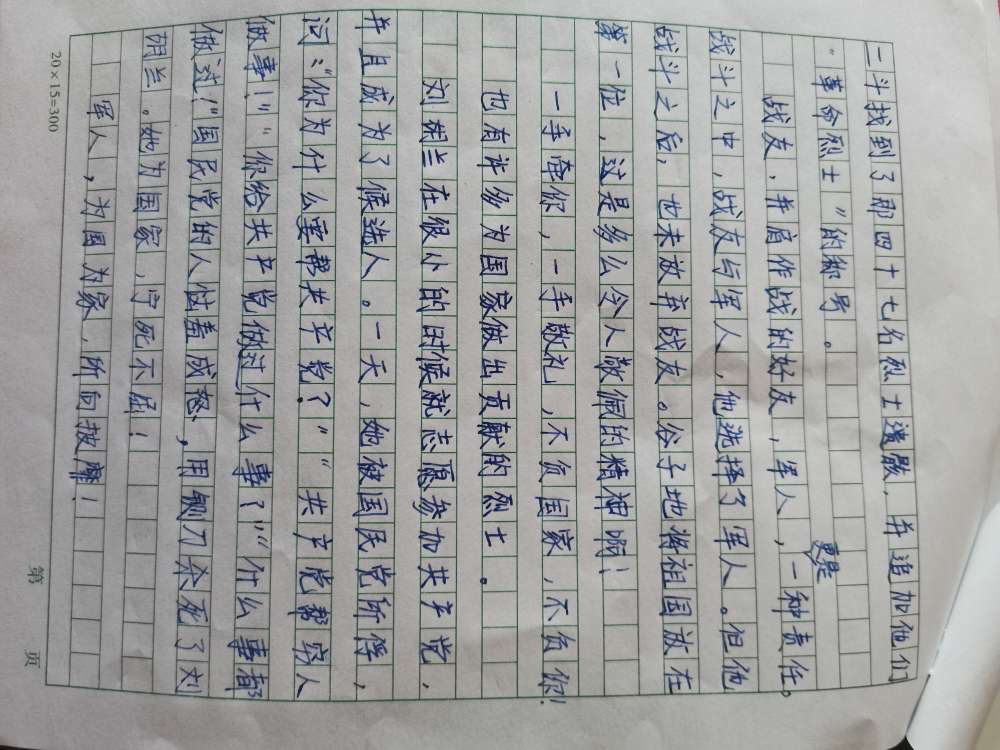 二斗找到了那四十七名烈士遗骸，并追加他们
“革命烈士”的称号。
战友，并肩作战的好友，军人，更是一种责任。
战斗之中，战友与军人，他选择了军人。但他
战斗之后，也未放弃战友。谷子地将祖国放在
第一位，这是多么令人敬佩的精神啊！
一手牵你，一手敬礼，不负国家，不负你！
也有许多为国家做出贡献的烈士。
刘胡兰在很小的时候就志愿参加共产党，
并且成为了候选人。一天，她被国民党所俘，
问：“你为什么要帮共产党？”“共产党帮穷人
做事！”“你给共产党做过什么事？”“什么事都
做过！”国民党的人怯羞成怒，用铡刀杀死了刘
胡兰。她为国家，宁死不屈！
军人，为国为家，所向披靡！
20×15=300
第 页